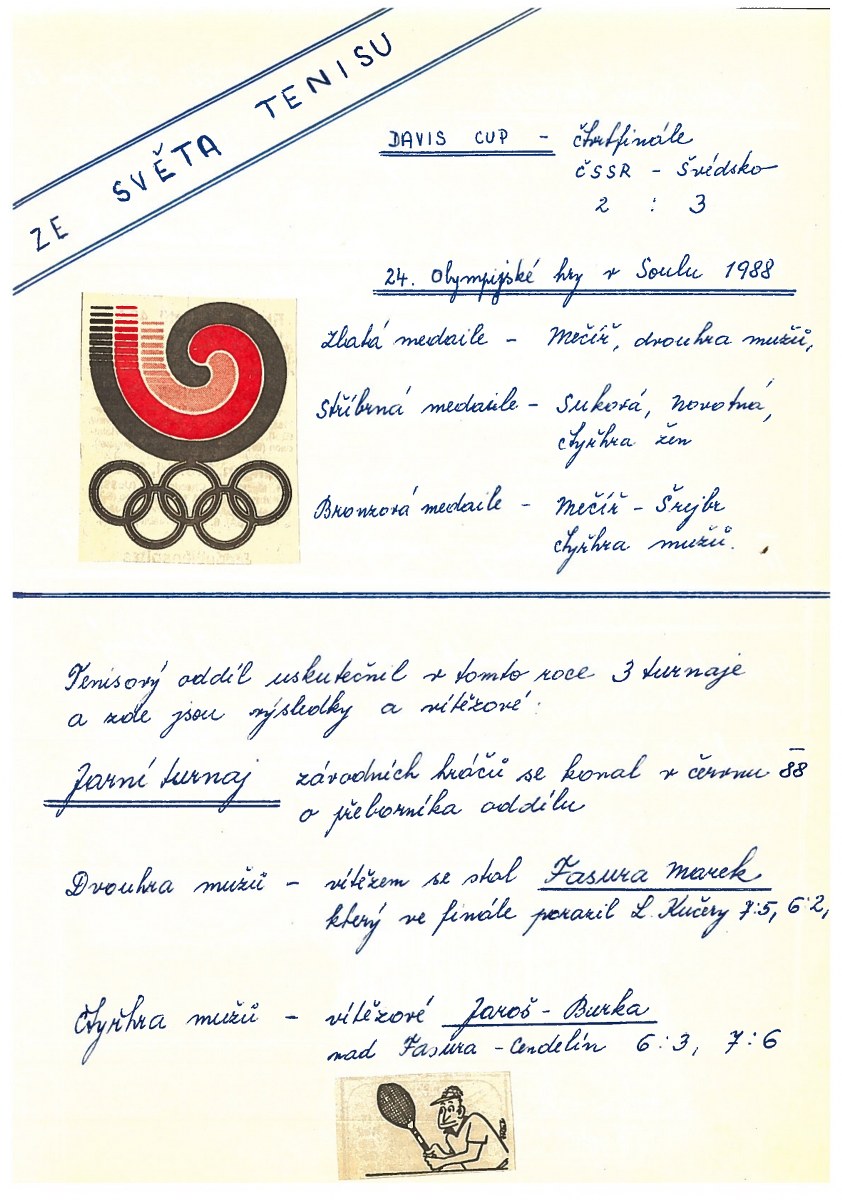 ZE SVĚTA TENISU
DAVIS CUP - čtvrtfinále
ČSSR - Švédsko
2 : 3
24. Olympijské hry v Soulu 1988
Zlatá medaile - Mečíř, dvouhra mužů,
Stříbrná medaile - Suková, Novotná,
čtyřhra žen
Bronzová medaile - Mečíř - Šrejbr
čtyřhra mužů.
Tenisový oddíl uskutečnil v tomto roce 3 turnaje
a zde jsou výsledky a vítězové:
Jarní turnaj závodních hráčů se konal v červnu 88
o přeborníka oddílu
Dvouhra mužů - vítězem se stal Fasura Marek
který ve finále porazil L. Kučery 7:5, 6:2,
Čtyřhra mužů - vítězové Jaroš - Burka
nad Fasura - Cendelín 6:3, 7:6